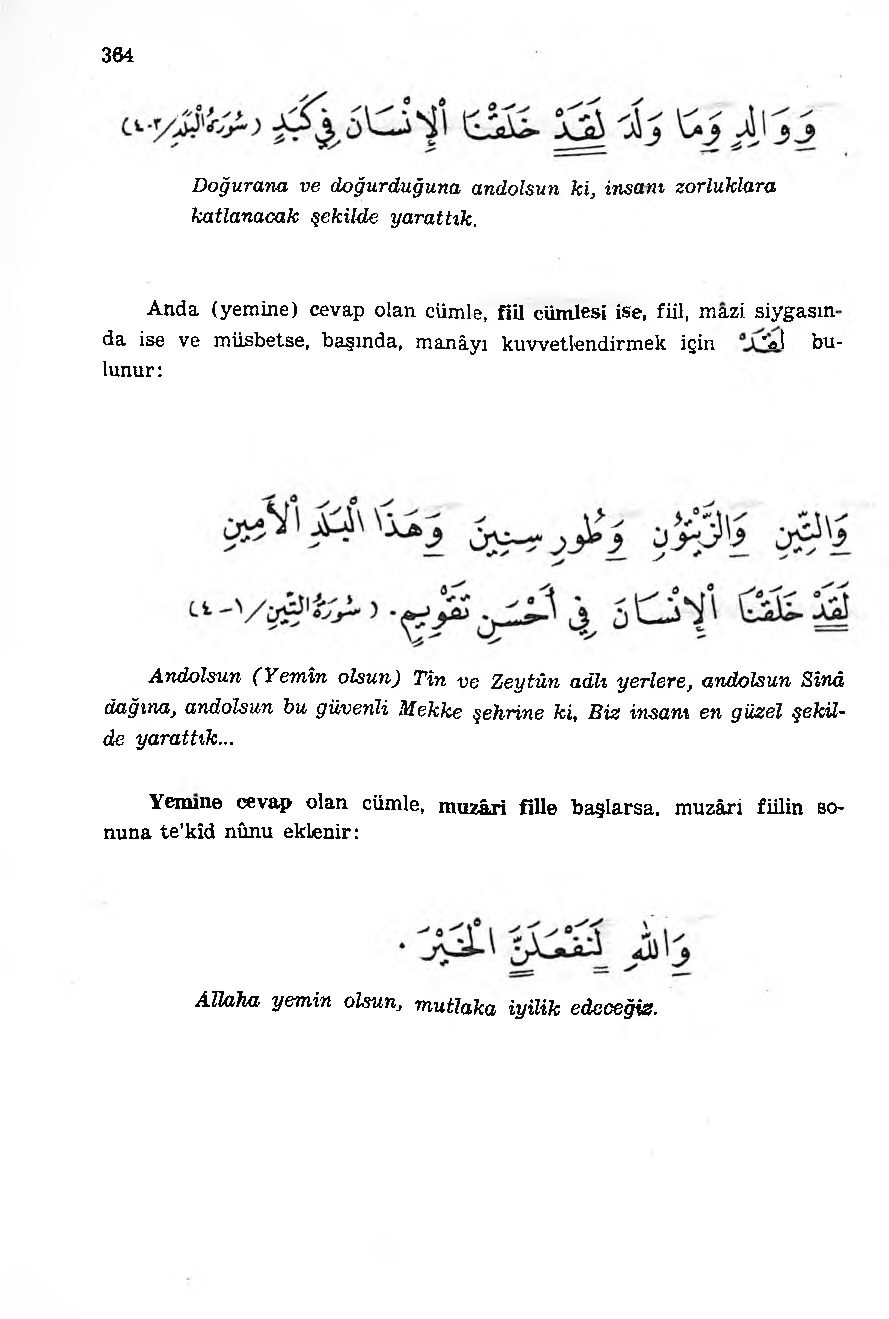 364
وَوَالِدٍ وَمَا وَلَدَ لَقَدْ خَلَقْنَا اْلإِنْسَانَ فِي كَبَدٍ (سُورَةُ الْبَلَدِ/٣-٤)
Doğurana ve doğurduğuna andolsun ki, insanı zorluklara
katlanacak şekilde yarattık.
Anda (yemine) cevap olan cümle, fiil cümlesi ise, fiil, mâzi siygasın-
da ise ve müsbetse, başında, manâyı kuvvetlendirmek için لَقَدْ bu-
lunur:
وَالتِّينِ وَالزَّيْتُونِ وَطُورِ سِنِينَ وَهَذَا الْبَلَدِ اْلأَمِينِ
لَقَدْ خَلَقْنَا اْلإِنْسَانَ فِي أَحْسَنِ تَقْوِيمٍ. (سُورَةُ التِّينِ/١-٤)
Andolsun (Yemîn olsun) Tîn ve Zeytûn adlı yerlere, andolsun Sînâ
dağına, andolsun bu güvenli Mekke şehrine ki, Biz insanı en güzel şekil-
de yarattık...
Yemine cevap olan cümle, muzâri fiille başlarsa, muzâri fiilin so-
nuna te'kîd nûnu eklenir:
وَاللهِ لَنَفْعَلَنَّ الْخَيْرَ.
Allaha yemin olsun, mutlaka iyilik edeceğiz.